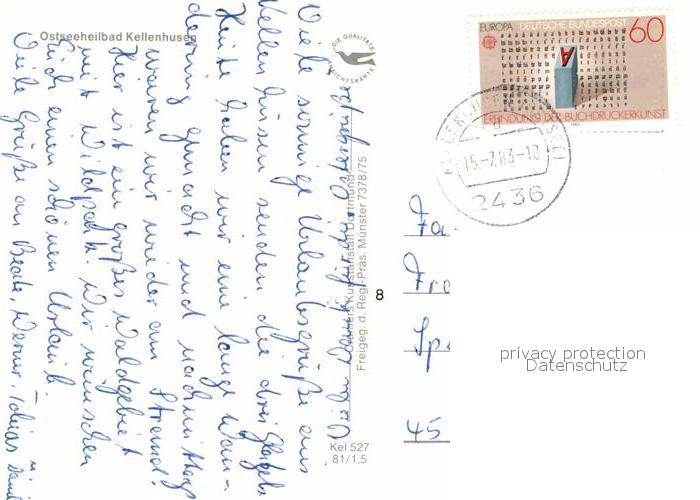 Ostseeheilbad Kellenhusen
DIE QUALITÄTS
ANSICHTSKARTE
Viele sonnige Urlaubsgrüße aus
Kellenhusen senden die drei
Heute haben wir eine lange Wan-
derung gemacht und nachmittags
waren wir wieder am Strand.
Hier ist ein großes Waldgebiet
mit Wildpark. Wir wünschen
Euch einen schönen Urlaub.
Viele Grüße an Beate, Werner, Tobias
Vielen Dank für
Cramers Kunstanstalt Dortmund
Freigeg. d. Reg.-Präs. Münster 7378/75
Kel 527
81/1,5
8
EUROPA DEUTSCHE BUNDESPOST 60
A
ERFINDUNG DER BUCHDRUCKERKUNST
15.-7.83-18
2436
Fa
Fr
Sp
45
privacy protection
Datenschutz